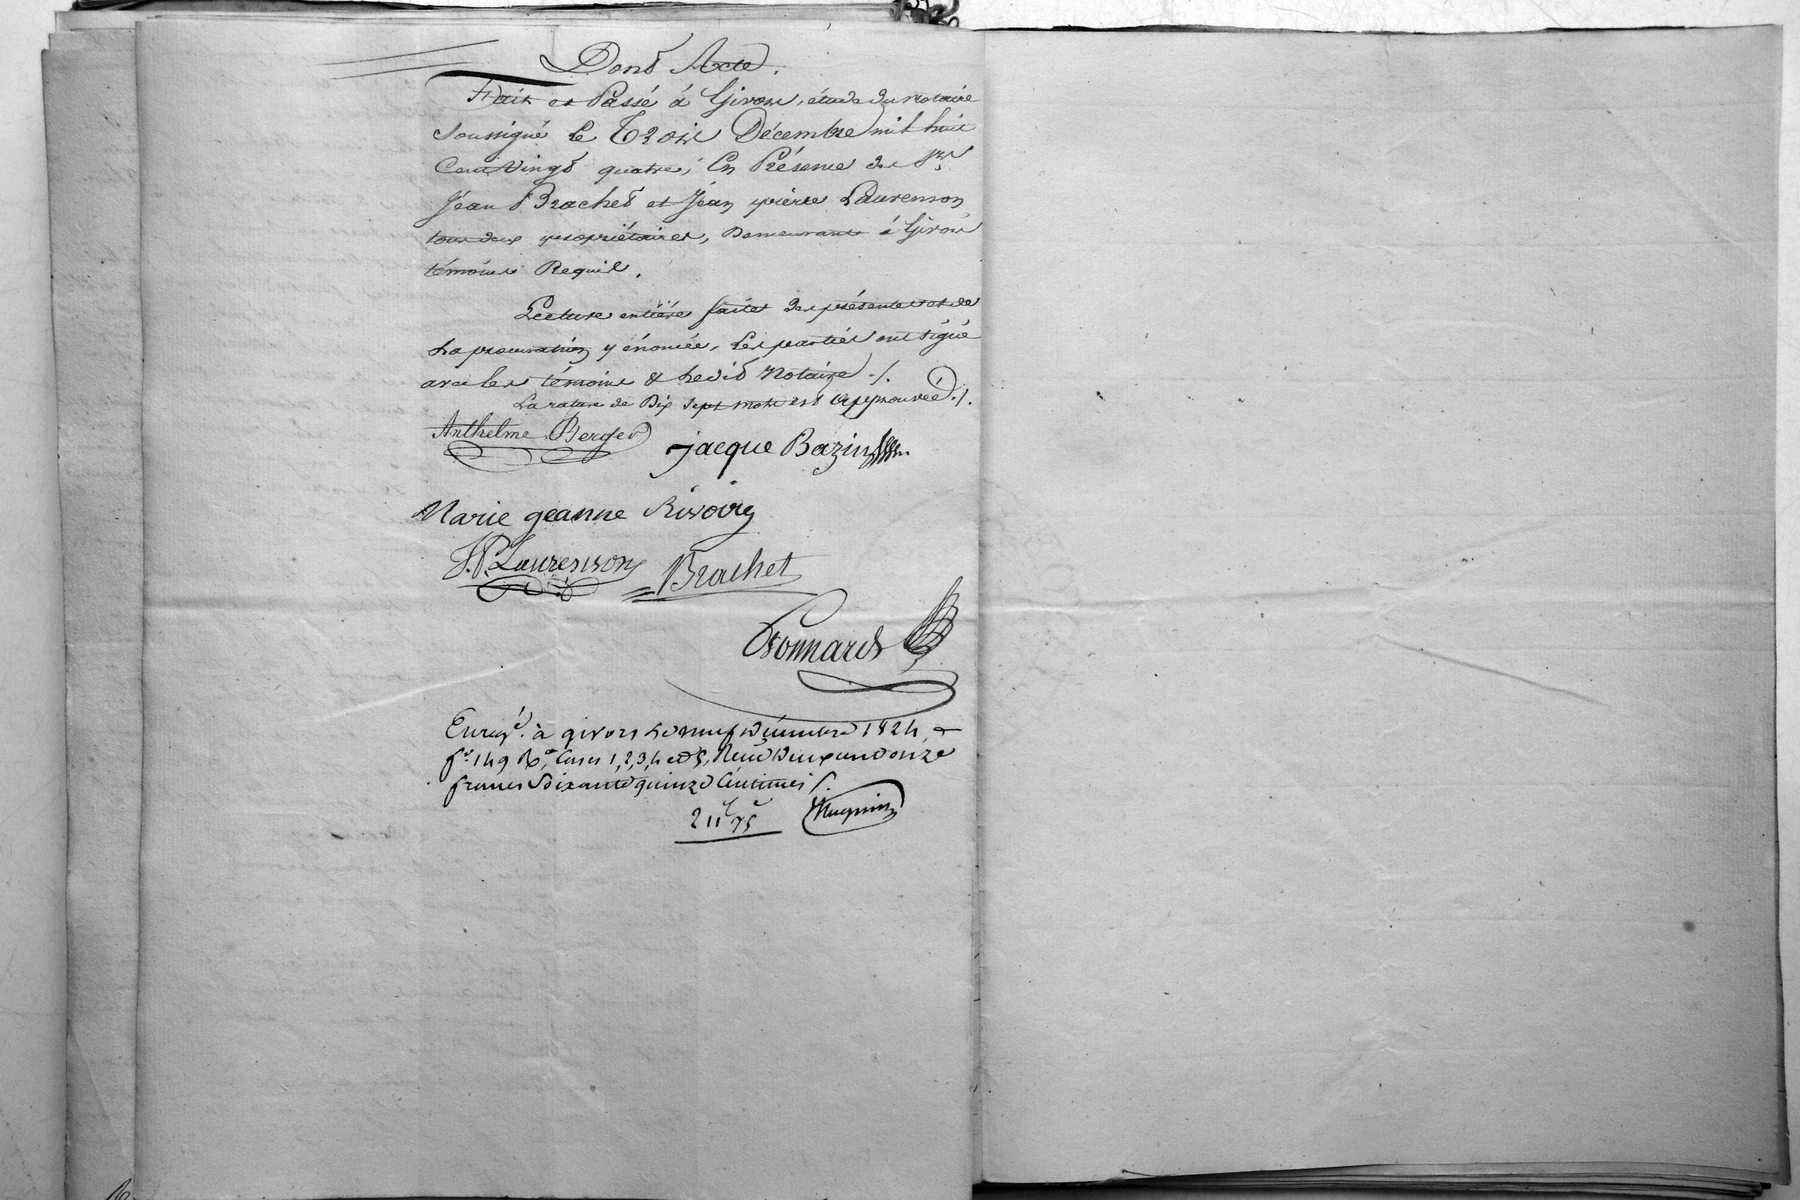 Dont Acte.
Fait et Passé à Givors, étude du notaire
soussigné Le Trois Décembre mil huit
Cent vingt quatre, En Présence de Srs
Jean Brachet et Jean pierre Laurenson
tous deux propriétaires, Demeurants à Givors
témoins Requis.
Lecture entière faite des présentes et de
La procuration y énoncée, Les parties ont signé
avec les témoins & ledit Notaire ./.
La rature de Dix sept mots est approuvée ./.
Anthelme Berger
jacque Bazin
Marie jeanne Rivoire
J.P. Laurenson Brachet
Bonnard
Enregé. à givors Le neuf Décembre 1824
fo. 149 Ro. Cases 1, 2, 3, 4 et 5, Reçu Deux cent onze
francs Soixante quinze Centimes
211 f 75 c